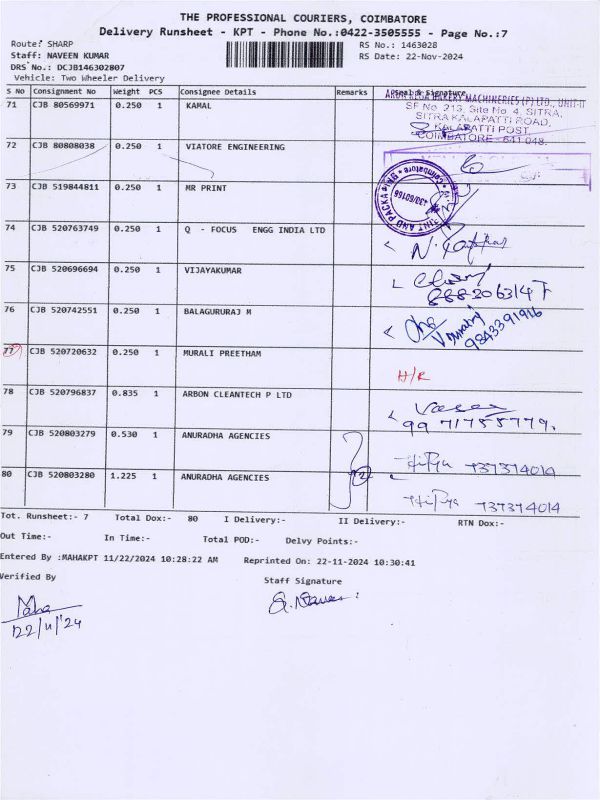 THE PROFESSIONAL COURIERS, COIMBATORE
Delivery Runsheet - KPT - Phone No.:0422-3505555 - Page No.:7
Route: SHARP RS No.: 1463028
Staff: NAVEEN KUMAR RS Date: 22-Nov-2024
DRS No.: DCJB146302807
Vehicle: Two Wheeler Delivery
S No Consignment No Weight PCS Consignee Details Remarks Seal & Signature
71 CJB 80569971 0.250 1 KAMAL
BAKERY MACHINERIES (P) LTD., UNIT-II
SF No. 213, Site No. 4, SITRA,
SITRA KALAPATTI ROAD,
KALAPATTI POST,
COIMBATORE - 641 048.
72 CJB 80808038 0.250 1 VIATORE ENGINEERING
73 CJB 519844811 0.250 1 MR PRINT
74 CJB 520763749 0.250 1 Q - FOCUS ENGG INDIA LTD
75 CJB 520696694 0.250 1 VIJAYAKUMAR
76 CJB 520742551 0.250 1 BALAGURURAJ M
9843391916
77 CJB 520720632 0.250 1 MURALI PREETHAM
H/R
78 CJB 520796837 0.835 1 ARBON CLEANTECH P LTD
99 71755779.
79 CJB 520803279 0.530 1 ANURADHA AGENCIES
737374014
80 CJB 520803280 1.225 1 ANURADHA AGENCIES
737374014
Tot. Runsheet:- 7 Total Dox:- 80 I Delivery:- II Delivery:- RTN Dox:-
Out Time:- In Time:- Total POD:- Delvy Points:-
Entered By :MAHAKPT 11/22/2024 10:28:22 AM Reprinted On: 22-11-2024 10:30:41
Verified By Staff Signature
Maha
22/11/24